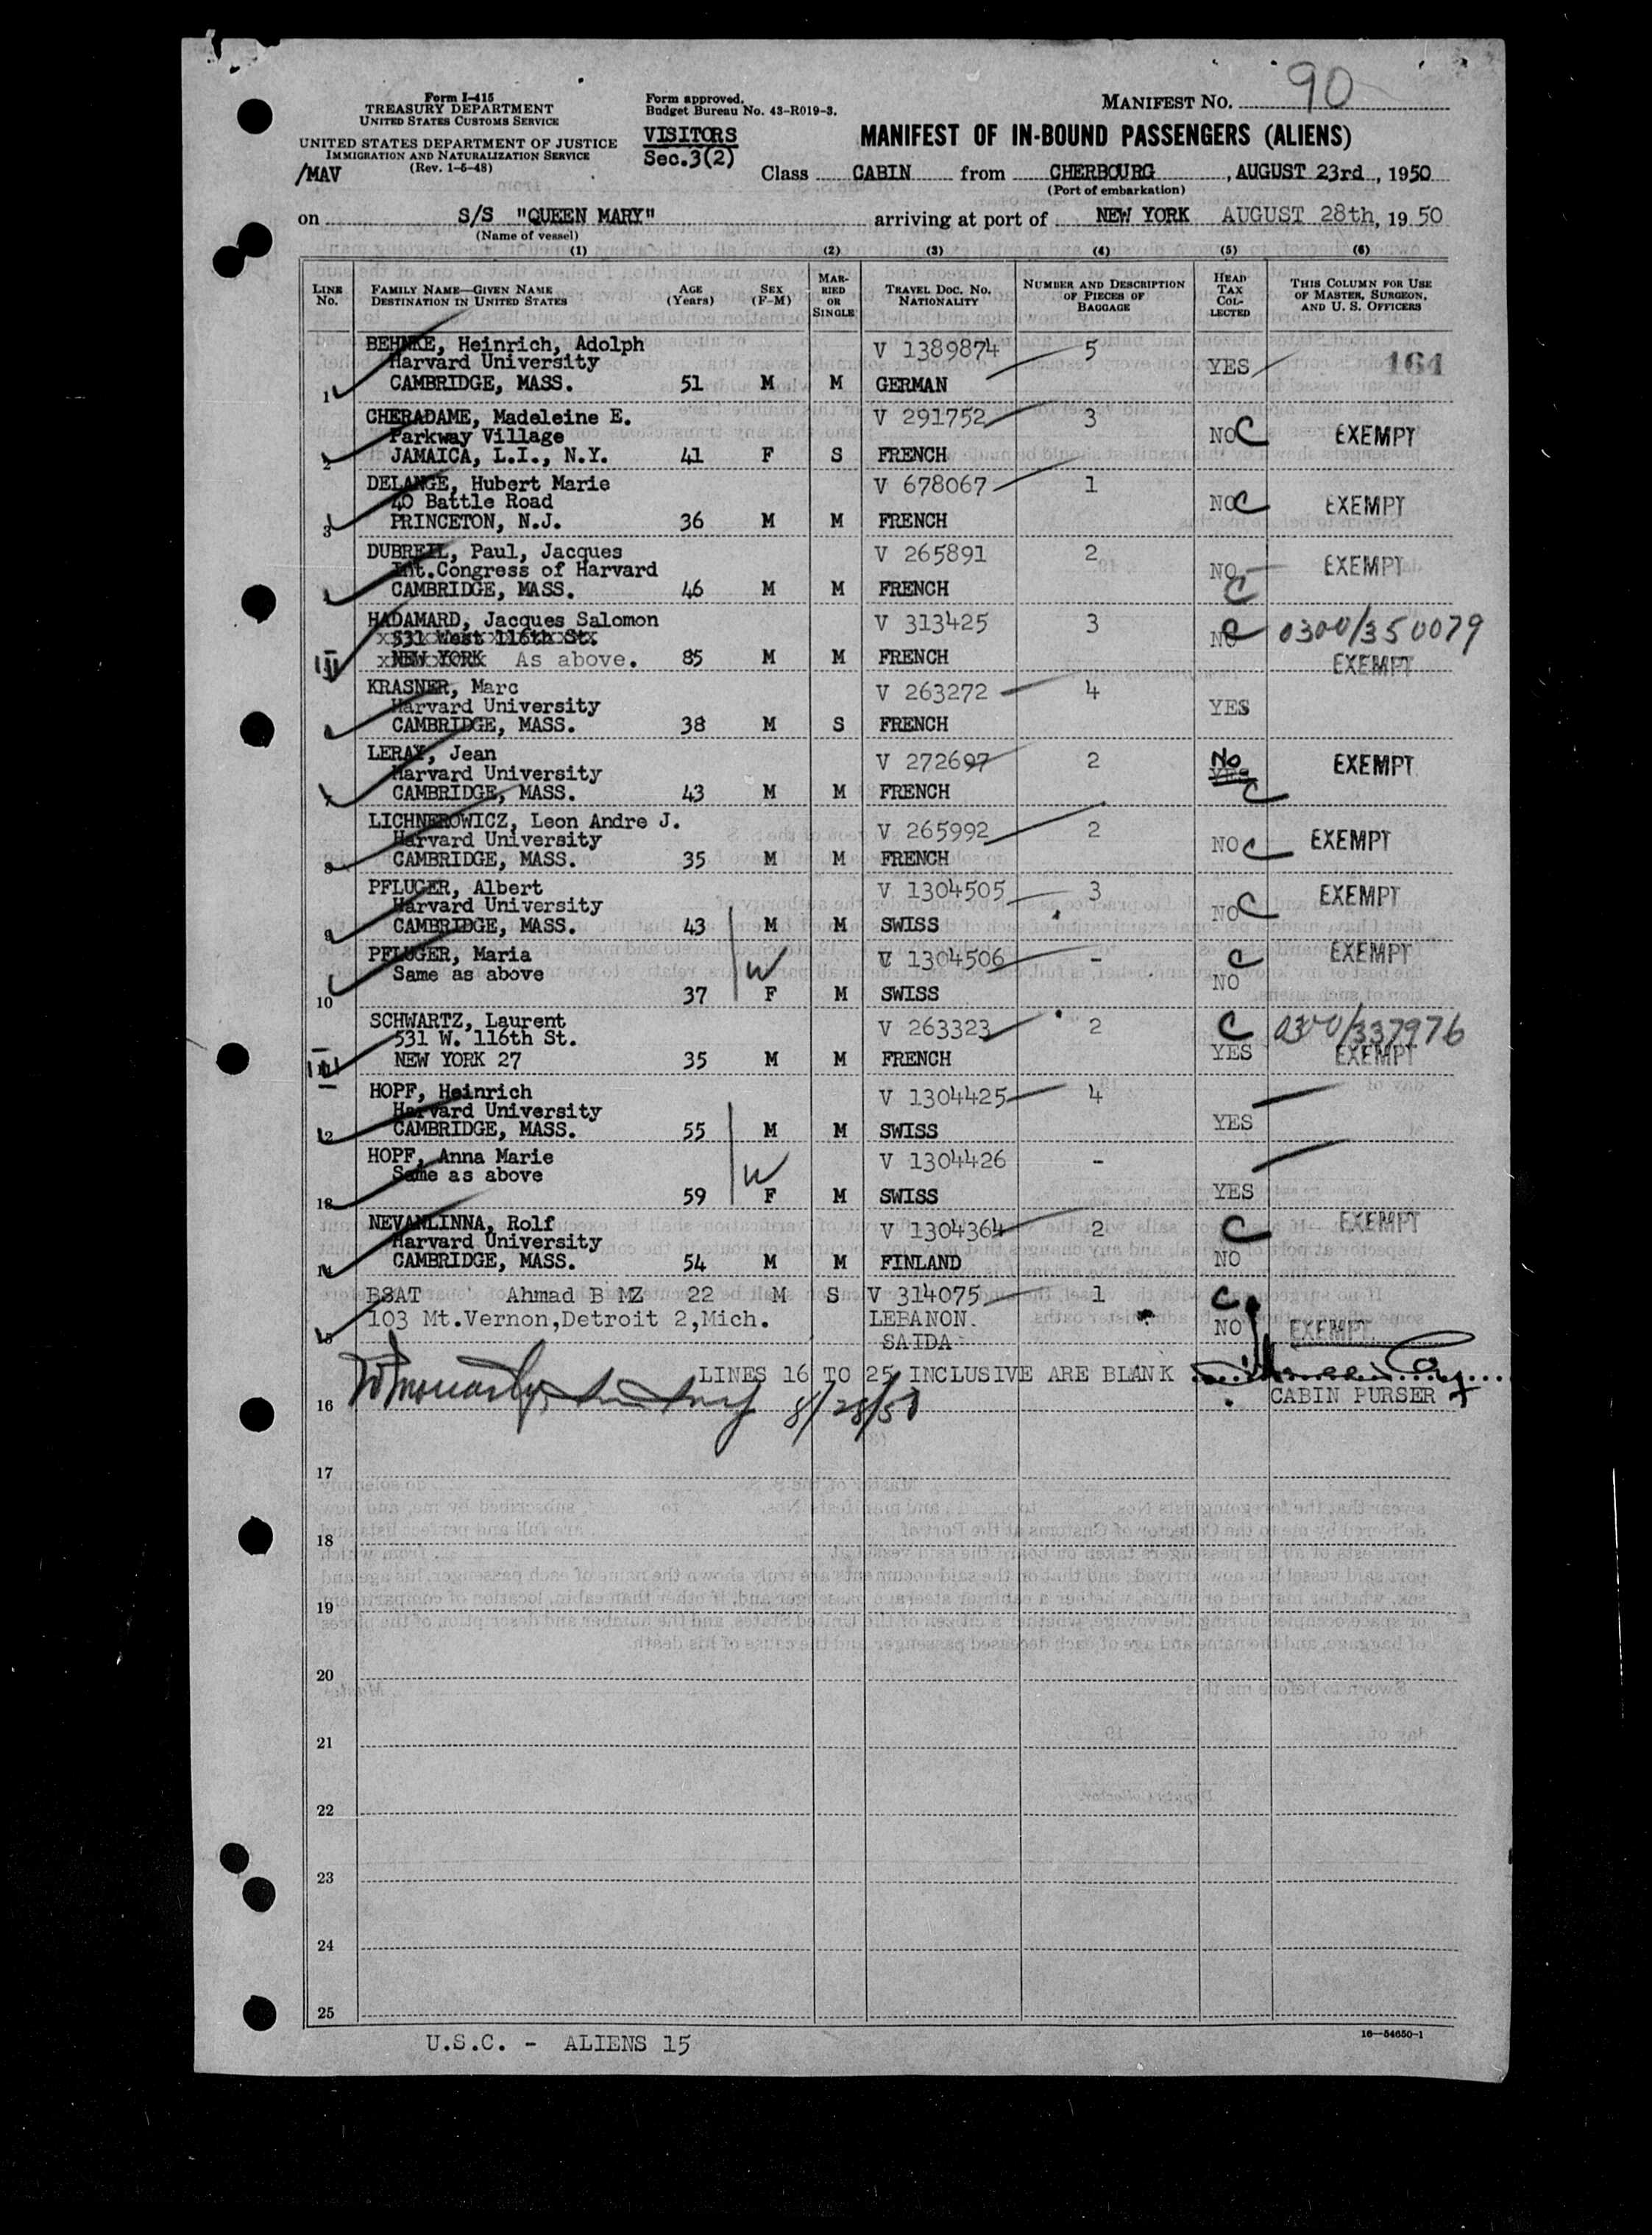 Form I-415
TREASURY DEPARTMENT
UNITED STATES CUSTOMS SERVICE
UNITED STATES DEPARTMENT OF JUSTICE
IMMIGRATION AND NATURALIZATION SERVICE
(Rev. 1-6-48)
/MAV
Form approved.
Budget Bureau No. 43-R019-3.
VISITORS
Sec.3(2)
MANIFEST NO. 90
MANIFEST OF IN-BOUND PASSENGERS (ALIENS)
Class CABIN from CHERBOURG, AUGUST 23rd, 1950
(Port of embarkation)
on S/S "QUEEN MARY" arriving at port of NEW YORK AUGUST 28th, 19 50
(Name of vessel)
(1) (2) (3) (4) (5) (6)
LINE No. FAMILY NAME—GIVEN NAME DESTINATION IN UNITED STATES AGE (Years) SEX (F-M) MARRIED OR SINGLE TRAVEL DOC. NO. NATIONALITY NUMBER AND DESCRIPTION OF PIECES OF BAGGAGE HEAD TAX COLLECTED THIS COLUMN FOR USE OF MASTER, SURGEON, AND U. S. OFFICERS
BEHNKE, Heinrich, Adolph V 1389874 5
Harvard University YES 164
1 CAMBRIDGE, MASS. 51 M M GERMAN
CHERADAME, Madeleine E. V 291752 3
Parkway Village NO C EXEMPT
2 JAMAICA, L.I., N.Y. 41 F S FRENCH
DELANGE, Hubert Marie V 678067 1
40 Battle Road NO C EXEMPT
3 PRINCETON, N.J. 36 M M FRENCH
DUBREIL, Paul, Jacques V 265891 2
Int.Congress of Harvard NO C EXEMPT
CAMBRIDGE, MASS. 46 M M FRENCH
HADAMARD, Jacques Salomon V 313425 3
531 West 116th St. NO C 0300/350079
NEW YORK As above. 85 M M FRENCH EXEMPT
KRASNER, Marc V 263272 4
Harvard University YES
CAMBRIDGE, MASS. 38 M S FRENCH
LERAY, Jean V 272697 2
Harvard University No YES C EXEMPT
7 CAMBRIDGE, MASS. 43 M M FRENCH
LICHNEROWICZ, Leon Andre J. V 265992 2
Harvard University NO C EXEMPT
8 CAMBRIDGE, MASS. 35 M M FRENCH
PFLUGER, Albert V 1304505 3
Harvard University NO C EXEMPT
9 CAMBRIDGE, MASS. 43 M M SWISS
PFLUGER, Maria W V 1304506 - C EXEMPT
Same as above NO
10 37 F M SWISS
SCHWARTZ, Laurent V 263323 2 C 0300/337976
531 W. 116th St. YES EXEMPT
11 NEW YORK 27 35 M M FRENCH
HOPF, Heinrich V 1304425 4
Harvard University YES
12 CAMBRIDGE, MASS. 55 M M SWISS
HOPF, Anna Marie W V 1304426 -
Same as above YES
13 59 F M SWISS
NEVANLINNA, Rolf V 1304364 2 C EXEMPT
Harvard University NO
14 CAMBRIDGE, MASS. 54 M M FINLAND
BSAT Ahmad B MZ 22 M S V 314075 1 C
103 Mt.Vernon,Detroit 2,Mich. LEBANON. NO EXEMPT
15 SAIDA
LINES 16 TO 25 INCLUSIVE ARE BLANK
16 8/28/50 CABIN PURSER
17
18
19
20
21
22
23
24
25
16—54650-1
U.S.C. - ALIENS 15